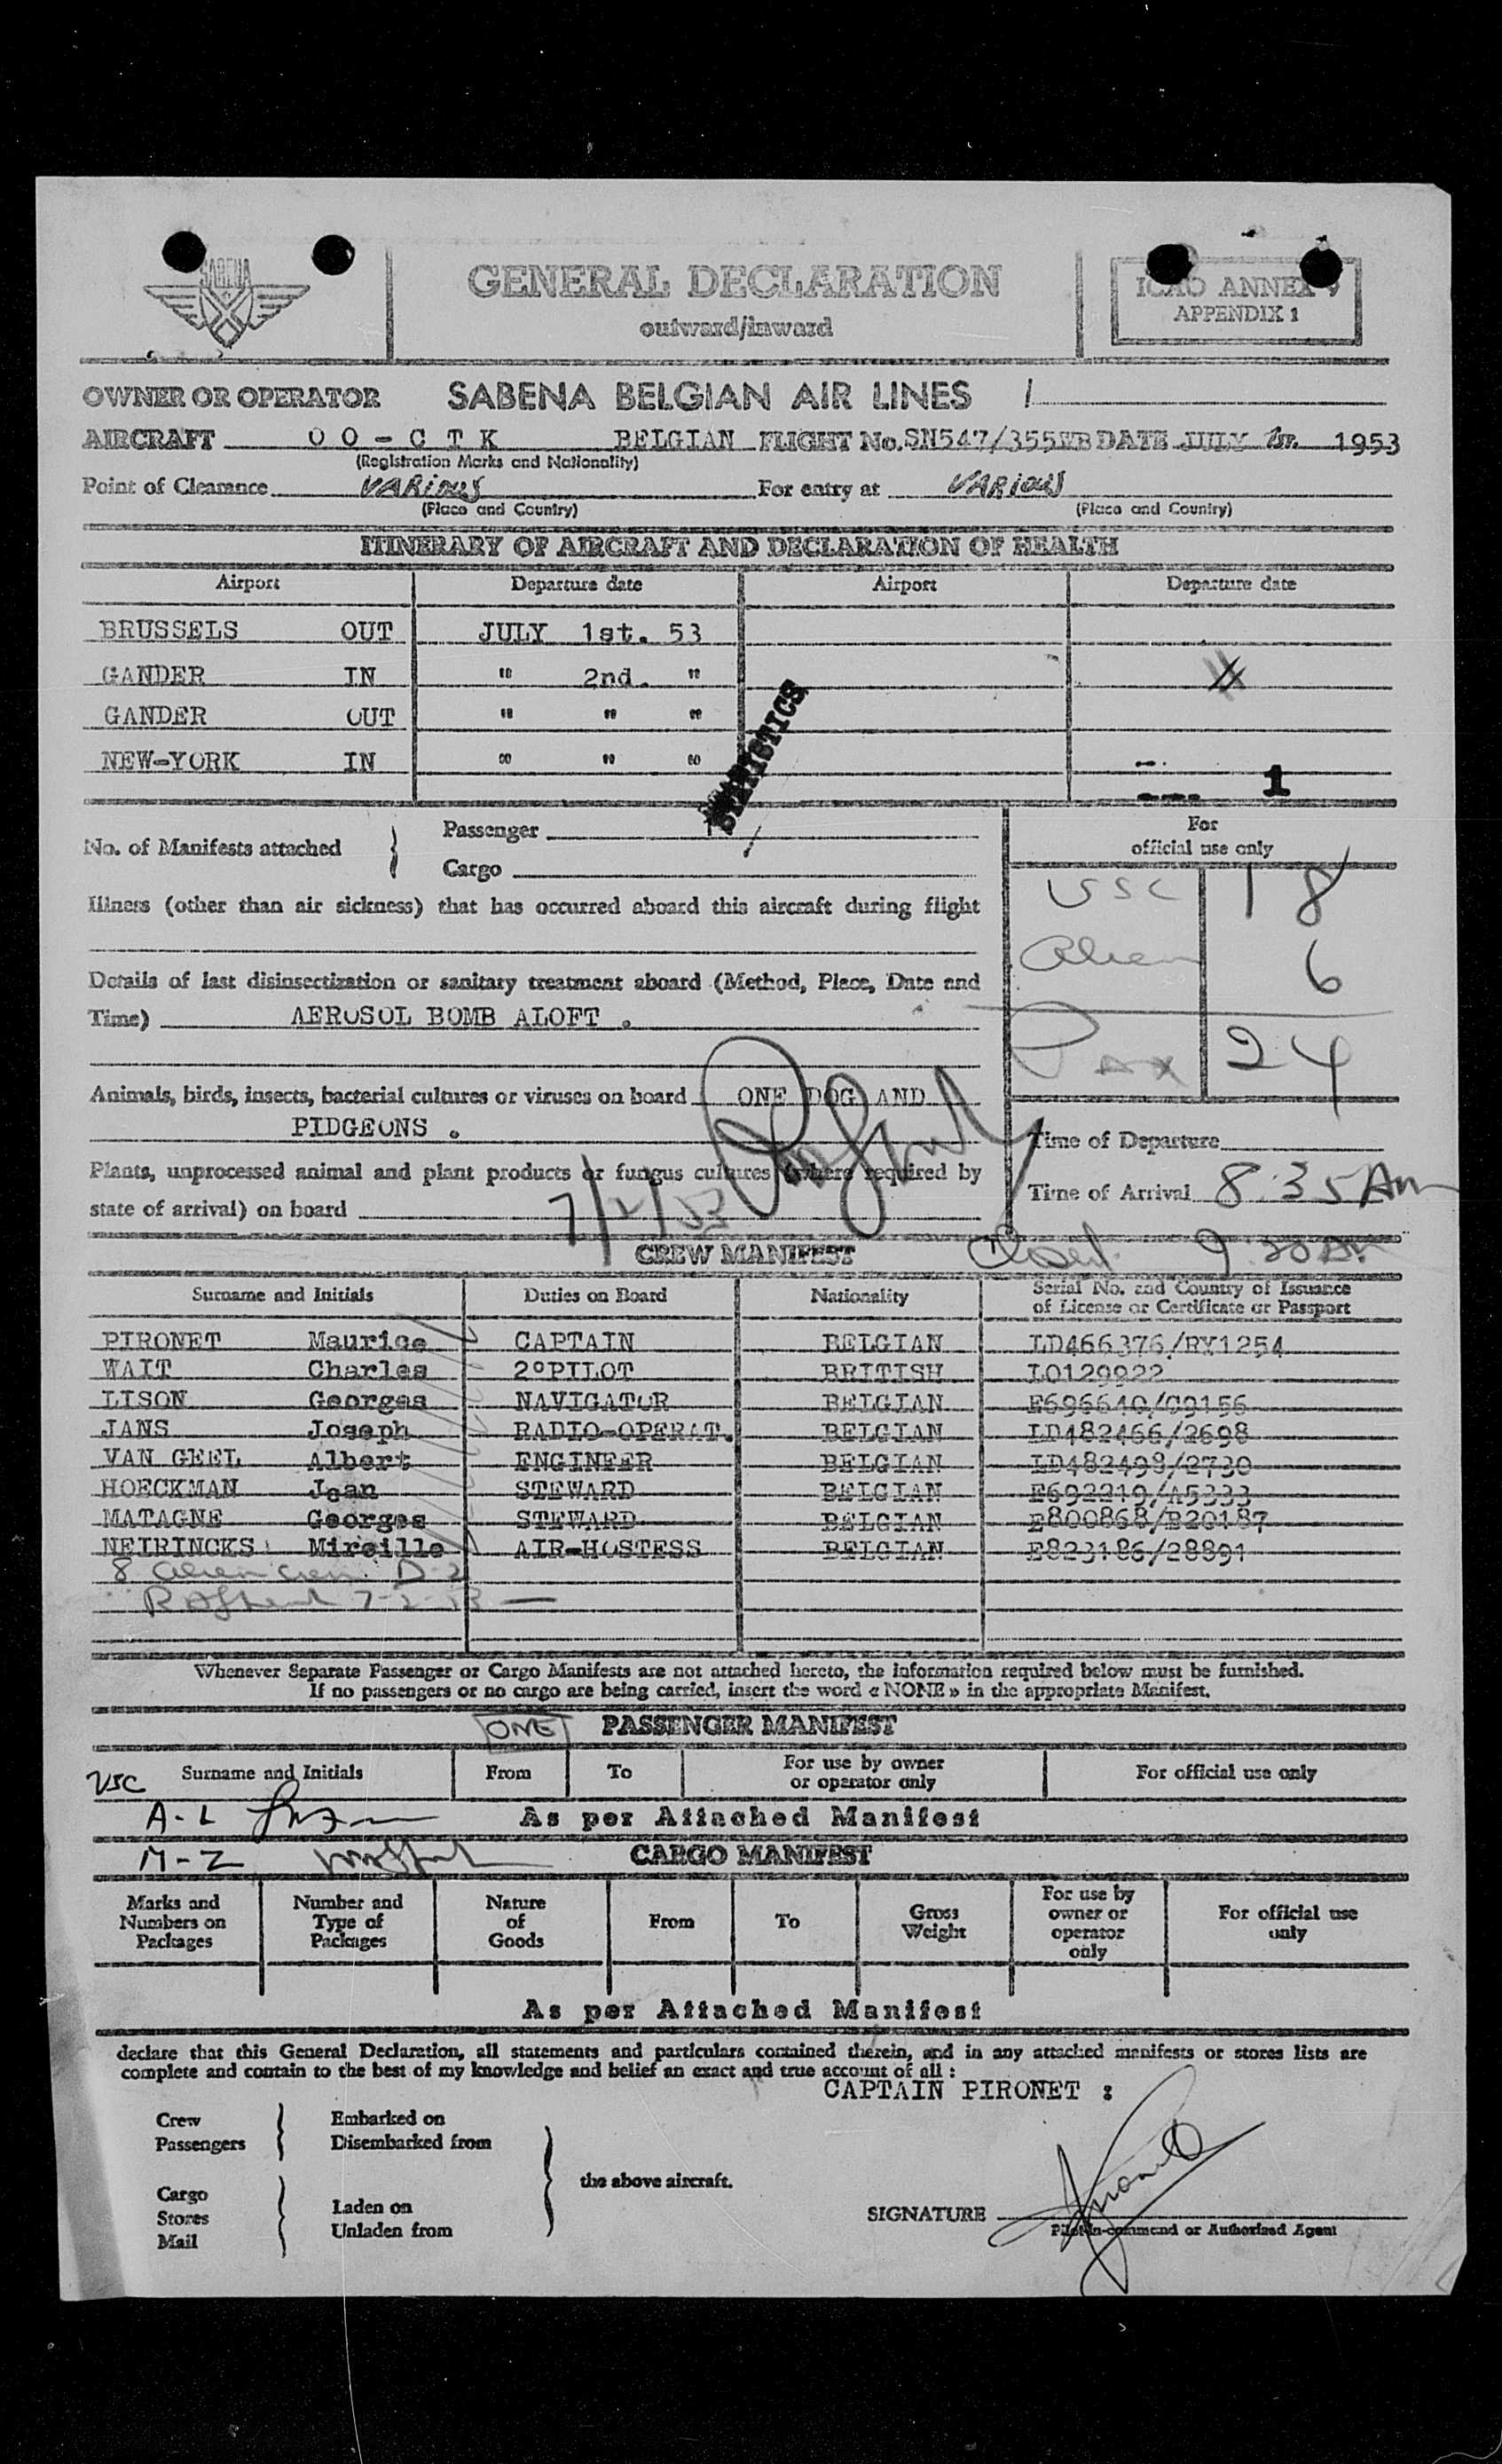 SABENA
GENERAL DECLARATION
outward/inward
ICAO ANNEX 9
APPENDIX 1
OWNER OR OPERATOR SABENA BELGIAN AIR LINES
AIRCRAFT OO-CTK BELGIAN FLIGHT No. SN547/355EB DATE JULY 1ST. 1953
(Registration Marks and Nationality)
Point of Clearance VARIOUS For entry at VARIOUS
(Place and Country) (Place and Country)
ITINERARY OF AIRCRAFT AND DECLARATION OF HEALTH
Airport Departure date Airport Departure date
BRUSSELS OUT JULY 1st. 53
GANDER IN " 2nd. "
GANDER OUT " " "
NEW-YORK IN " " "
STATISTICS
1
No. of Manifests attached
Passenger
Cargo
For
official use only
USC 18
Alien 6
Pax 24
Illness (other than air sickness) that has occurred aboard this aircraft during flight
Details of last disinsectization or sanitary treatment aboard (Method, Place, Date and
Time) AEROSOL BOMB ALOFT .
Animals, birds, insects, bacterial cultures or viruses on board ONE DOG AND
PIDGEONS .
Plants, unprocessed animal and plant products or fungus cultures (where required by
state of arrival) on board
7/2/53
Time of Departure
Time of Arrival 8:35 Am
Closed 9:30 Am
CREW MANIFEST
Surname and Initials Duties on Board Nationality Serial No. and Country of Issuance
of License or Certificate or Passport
PIRONET Maurice CAPTAIN BELGIAN LD466376/RX1254
WAIT Charles 2°PILOT BRITISH LO129922
LISON Georges NAVIGATOR BELGIAN E696640/C9156
JANS Joseph RADIO-OPERAT. BELGIAN LD482466/2698
VAN GEEL Albert ENGINEER BELGIAN LD482498/2730
HOECKMAN Jean STEWARD BELGIAN E692219/A5333
MATAGNE Georges STEWARD BELGIAN E800868/B20187
NEIRINCKS Mireille AIR-HOSTESS BELGIAN E823186/28891
8 alien crew D-2
7-2-53
Whenever Separate Passenger or Cargo Manifests are not attached hereto, the information required below must be furnished.
If no passengers or no cargo are being carried, insert the word « NONE » in the appropriate Manifest.
ONE PASSENGER MANIFEST
USC Surname and Initials From To For use by owner
or operator only For official use only
A-L As per Attached Manifest
M-Z CARGO MANIFEST
Marks and
Numbers on
Packages
Number and
Type of
Packages
Nature
of
Goods
From
To
Gross
Weight
For use by
owner or
operator
only
For official use
only
As per Attached Manifest
declare that this General Declaration, all statements and particulars contained therein, and in any attached manifests or stores lists are
complete and contain to the best of my knowledge and belief an exact and true account of all :
CAPTAIN PIRONET :
Crew
Passengers
Embarked on
Disembarked from
Cargo
Stores
Mail
Laden on
Unladen from
the above aircraft.
SIGNATURE Pironet
Pilot-in-command or Authorized Agent